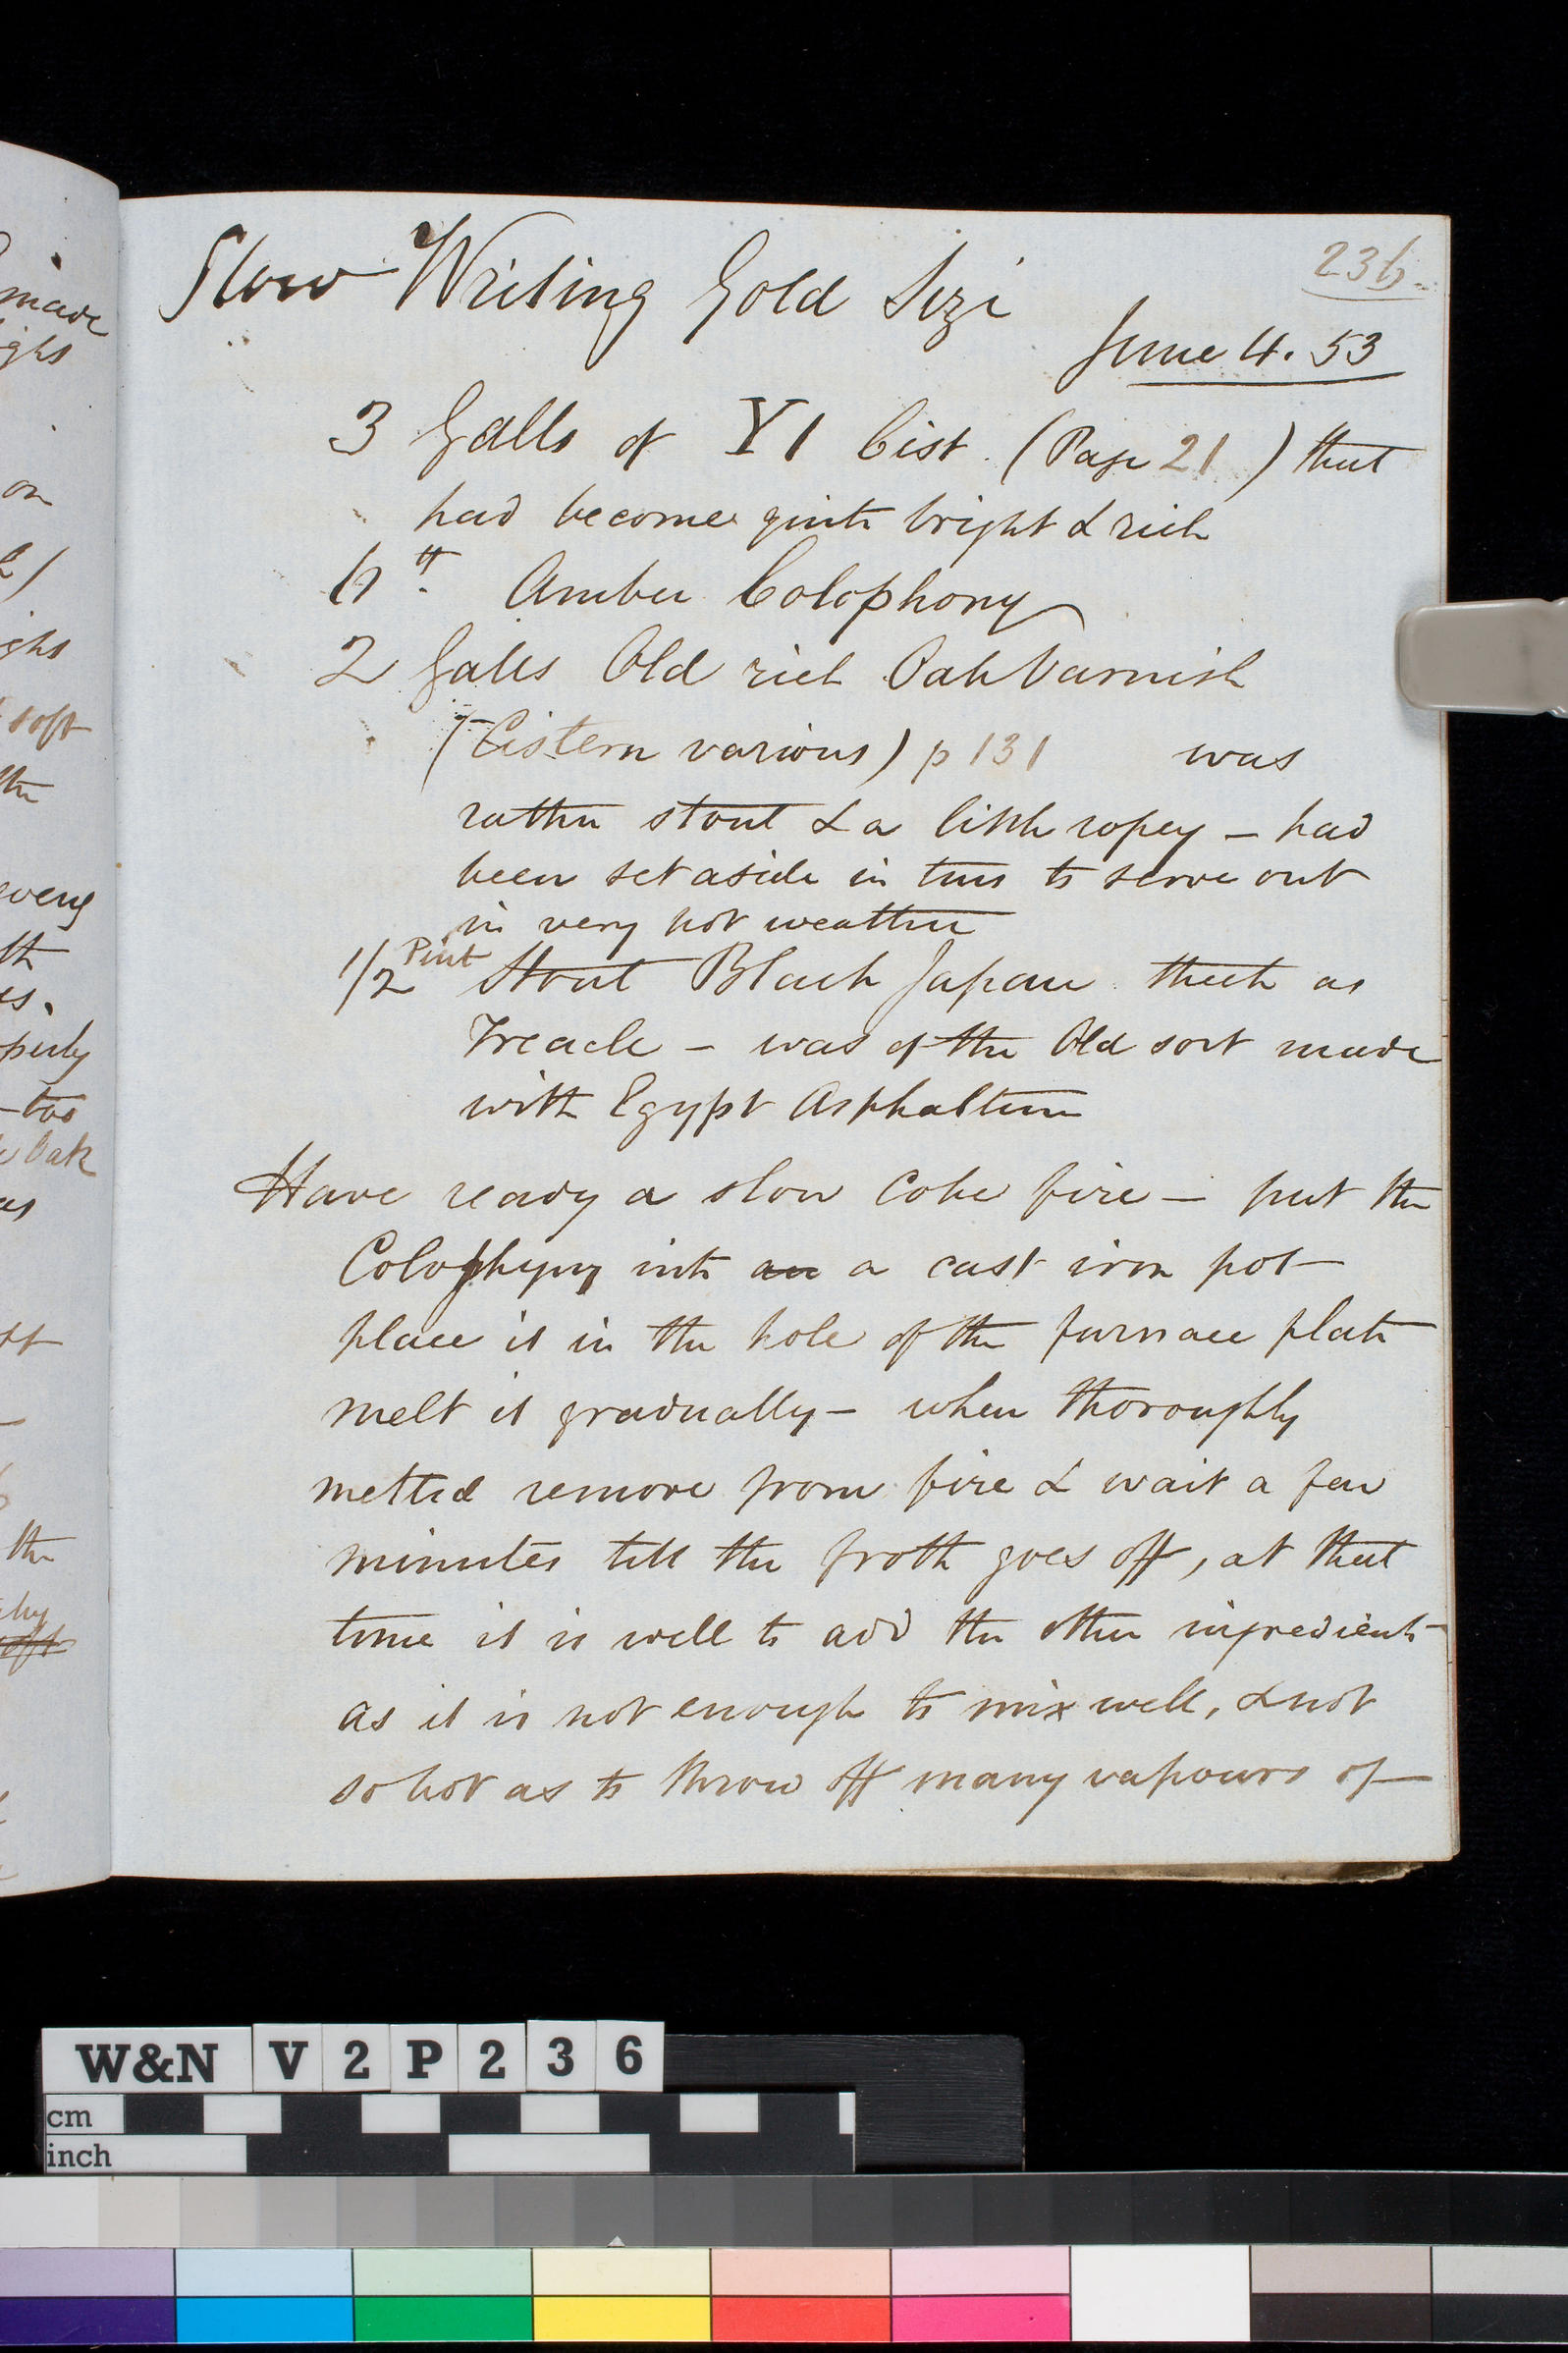 Slow Writing Gold Size
236
June 4. 53
3 Galls of Y1 Cist. (Page 21) that
had become quite bright & rich
6 lb. Amber Colophony
2 Galls Old rich Oak Varnish
(Cistern various) p 131 was
rather stout & a little ropey – had
been set aside in tins to serve out
in very hot weather
1/2 Pint Stout Black Japan thick as
Treacle – was of the Old sort made
with Egypt Asphaltum
Have ready a slow Coke fire – put the
Colophony into an a cast iron pot
place it in the hole of the furnace plate
melt it gradually – when thoroughly
melted remove from fire & wait a few
minutes till the froth goes off, at that
time it is well to add the other ingredients
as it is hot enough to mix well, & not
so hot as to throw off many vapours of
made
on
soft
the
perly
too
Oak
the
W&N V2P236
cm
inch